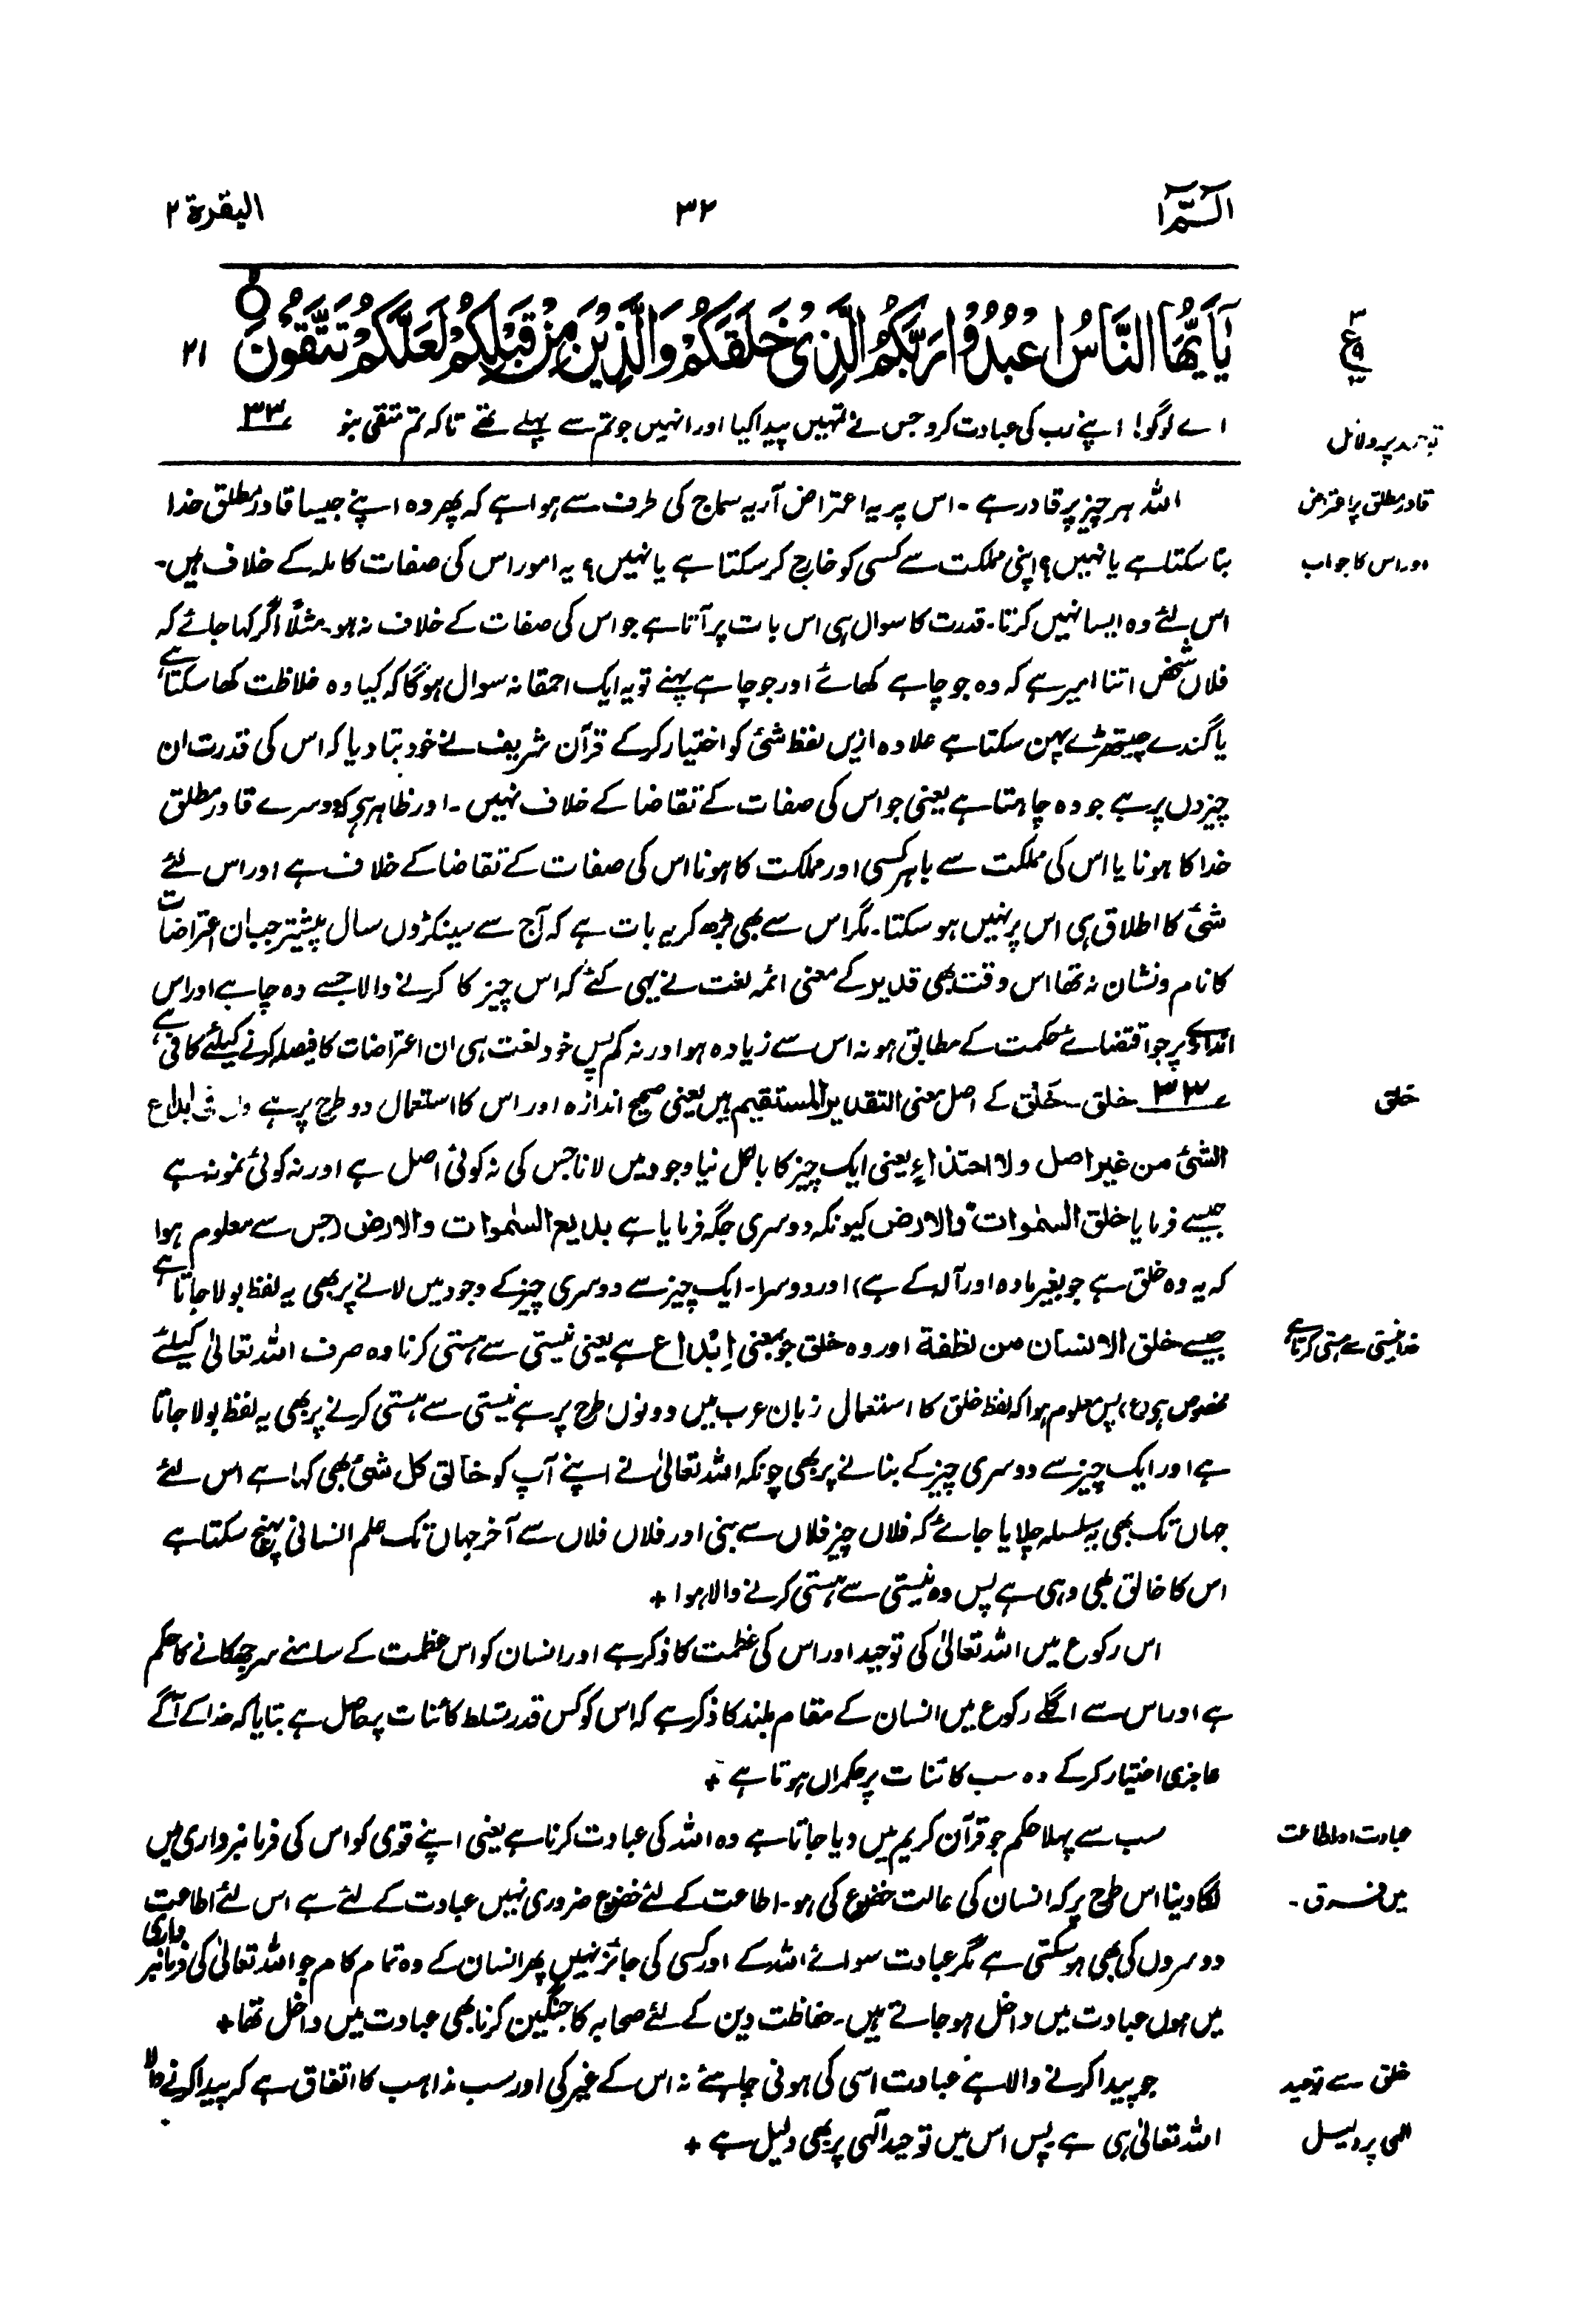 الٓمّٓ ۱
۳۲
البقرۃ ۲
یٰۤاَیُّہَا النَّاسُ اعْبُدُوْا رَبَّکُمُ الَّذِیْ خَلَقَکُمْ وَالَّذِیْنَ مِنْ قَبْلِکُمْ لَعَلَّکُمْ تَتَّقُوْنَ ۲۱
اے لوگو! اپنے رب کی عبادت کرو جس نے تمہیں پیدا کیا اور انہیں جو تم سے پہلے تھے تاکہ تم متقی بنو ۳۳
اللہ ہر چیز پر قادر ہے ۔ اس پر یہ اعتراض آریہ سماج کی طرف سے ہوا ہے کہ پھر وہ اپنے جیسا قادر مطلق خدا
قادر مطلق پر اعتراض
بنا سکتا ہے یا نہیں؟ اپنی مملکت سے کسی کو خارج کر سکتا ہے یا نہیں؟ یہ امور اس کی صفات کاملہ کے خلاف ہیں۔
اور اس کا جواب
اس لئے وہ ایسا نہیں کرتا۔ قدرت کا سوال ہی اس بات پر آتا ہے جو اس کی صفات کے خلاف نہ ہو۔ مثلاً اگر کہا جائے کہ
فلاں شخص اتنا امیر ہے کہ وہ جو چاہے کھائے اور جو چاہے پہنے تو یہ ایک احمقانہ سوال ہوگا کہ کیا وہ غلاظت کھا سکتا ہے،
یا گندے چیتھڑے پہن سکتا ہے علاوہ ازیں لفظ شئ کو اختیار کرکے قرآن شریف نے خود بتا دیا کہ اس کی قدرت ان
چیزوں پر ہے جو وہ چاہتا ہے یعنی جو اس کی صفات کے تقاضا کے خلاف نہیں ۔ اور ظاہر ہے کہ دوسرے قادر مطلق
خدا کا ہونا یا اس کی مملکت سے باہر کسی اور مملکت کا ہونا اس کی صفات کے تقاضا کے خلاف ہے اور اس لئے
شئ کا اطلاق ہی اس پر نہیں ہو سکتا۔ مگر اس سے بھی بڑھ کر یہ بات ہے کہ آج سے سینکڑوں سال پیشتر جب ان اعتراضات
کا نام و نشان نہ تھا اس وقت بھی قدیر کے معنی ائمہ لغت نے یہی کئے کہ اس چیز کا کرنے والا جسے وہ چاہے اور اس
اندازہ پر جو اقتضائے حکمت کے مطابق ہو نہ اس سے زیادہ ہو اور نہ کم پس خود لغت ہی ان اعتراضات کا فیصلہ کرنے کیلئے کافی ہے،
۳۳ خلق ۔ خَلْق کے اصل معنی التقدیر المستقیم ہیں یعنی صحیح اندازہ اور اس کا استعمال دو طرح پر ہے ابداع
خلق
الشئ من غیر اصل ولا احتذاءٍ یعنی ایک چیز کا بالکل نیا وجود میں لانا جس کی نہ کوئی اصل ہے اور نہ کوئی نمونہ ہے
جیسے فرمایا خلق السمٰوات والارض کیونکہ دوسری جگہ فرمایا ہے بدیع السمٰوات والارض (جس سے معلوم ہوا
کہ یہ وہ خلق ہے جو بغیر مادہ اور آلہ کے ہے) اور دوسرا ۔ ایک چیز سے دوسری چیز کے وجود میں لانے پر بھی یہ لفظ بولا جاتا ہے،
جیسے خلق الانسان من نطفۃ اور وہ خلق جو بمعنی اِبْداع ہے یعنی نیستی سے ہستی کرنا وہ صرف اللہ تعالیٰ کیلئے
خدا نیستی سے ہستی کرتا ہے
مخصوص ہے (غ) پس معلوم ہوا کہ لفظ خلق کا استعمال زبان عرب میں دونوں طرح پر ہے نیستی سے ہستی کرنے پر بھی یہ لفظ بولا جاتا
ہے اور ایک چیز سے دوسری چیز کے بنانے پر بھی چونکہ اللہ تعالیٰ نے اپنے آپ کو خالق کل شئ بھی کہا ہے اس لئے
جہاں تک بھی یہ سلسلہ چلایا جائے کہ فلاں چیز فلاں سے بنی اور فلاں فلاں سے آخر جہاں تک علم انسانی پہنچ سکتا ہے
اس کا خالق بھی وہی ہے پس وہ نیستی سے ہستی کرنے والا ہوا +
اس رکوع میں اللہ تعالیٰ کی توحید اور اس کی عظمت کا ذکر ہے اور انسان کو اس عظمت کے سامنے سر جھکانے کا حکم
ہے اور اس سے اگلے رکوع میں انسان کے مقام بلند کا ذکر ہے کہ اس کو کس قدر تسلط کائنات پر حاصل ہے بتایا کہ خدا کے آگے
عاجزی اختیار کرکے وہ سب کائنات پر حکمراں ہوتا ہے +
سب سے پہلا حکم جو قرآن کریم میں دیا جاتا ہے وہ اللہ کی عبادت کرنا ہے یعنی اپنے قویٰ کو اس کی فرمانبرداری میں
عبادت اور اطاعت
لگا دینا اس طرح پر کہ انسان کی حالت خضوع کی ہو ۔ اطاعت کے لئے خضوع ضروری نہیں عبادت کے لئے ہے اس لئے اطاعت
میں فرق ۔
دوسروں کی بھی ہو سکتی ہے مگر عبادت سوائے اللہ کے اور کسی کی جائز نہیں پھر انسان کے وہ تمام کام جو اللہ تعالیٰ کی فرمانبرداری
میں ہوں عبادت میں داخل ہو جاتے ہیں ۔ حفاظت دین کے لئے صحابہ کا جنگیں کرنا بھی عبادت میں داخل تھا +
جو پیدا کرنے والا ہے عبادت اسی کی ہونی چاہئے نہ اس کے غیر کی اور سب مذاہب کا اتفاق ہے کہ پیدا کرنے والا
خلق سے توحید
اللہ تعالیٰ ہی ہے پس اس میں توحید الٰہی پر بھی دلیل ہے +
الٰہی پر دلیل